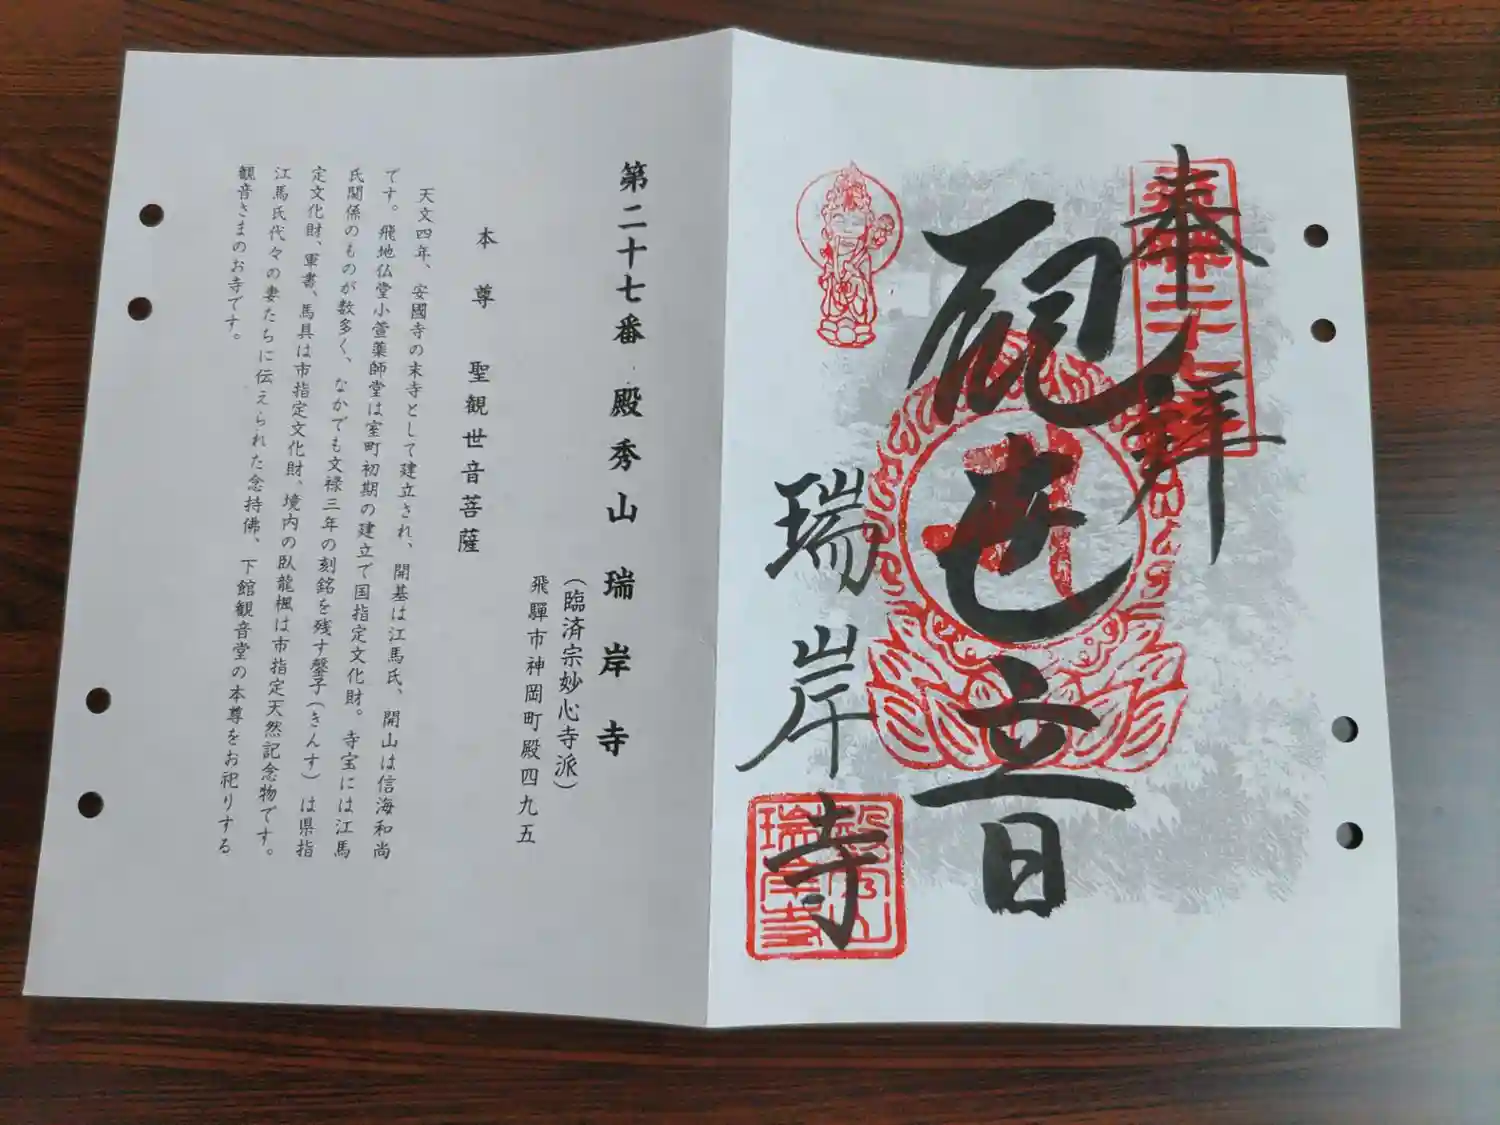 奉拝
観世音
瑞岸寺
第二十七番 殿秀山 瑞岸寺
（臨済宗妙心寺派）
飛騨市神岡町殿四九五
本尊 聖観世音菩薩
天文四年、安國寺の末寺として建立され、開基は江馬氏、開山は信海和尚
です。飛地仏堂小萱薬師堂は室町初期の建立で国指定文化財。寺宝には江馬
氏関係のものが数多く、なかでも文禄三年の刻銘を残す鏧子（きんす）は県指
定文化財、軍書、馬具は市指定文化財、境内の臥龍楓は市指定天然記念物です。
江馬氏代々の妻たちに伝えられた念持佛、下館観音堂の本尊をお祀りする
観音さまのお寺です。